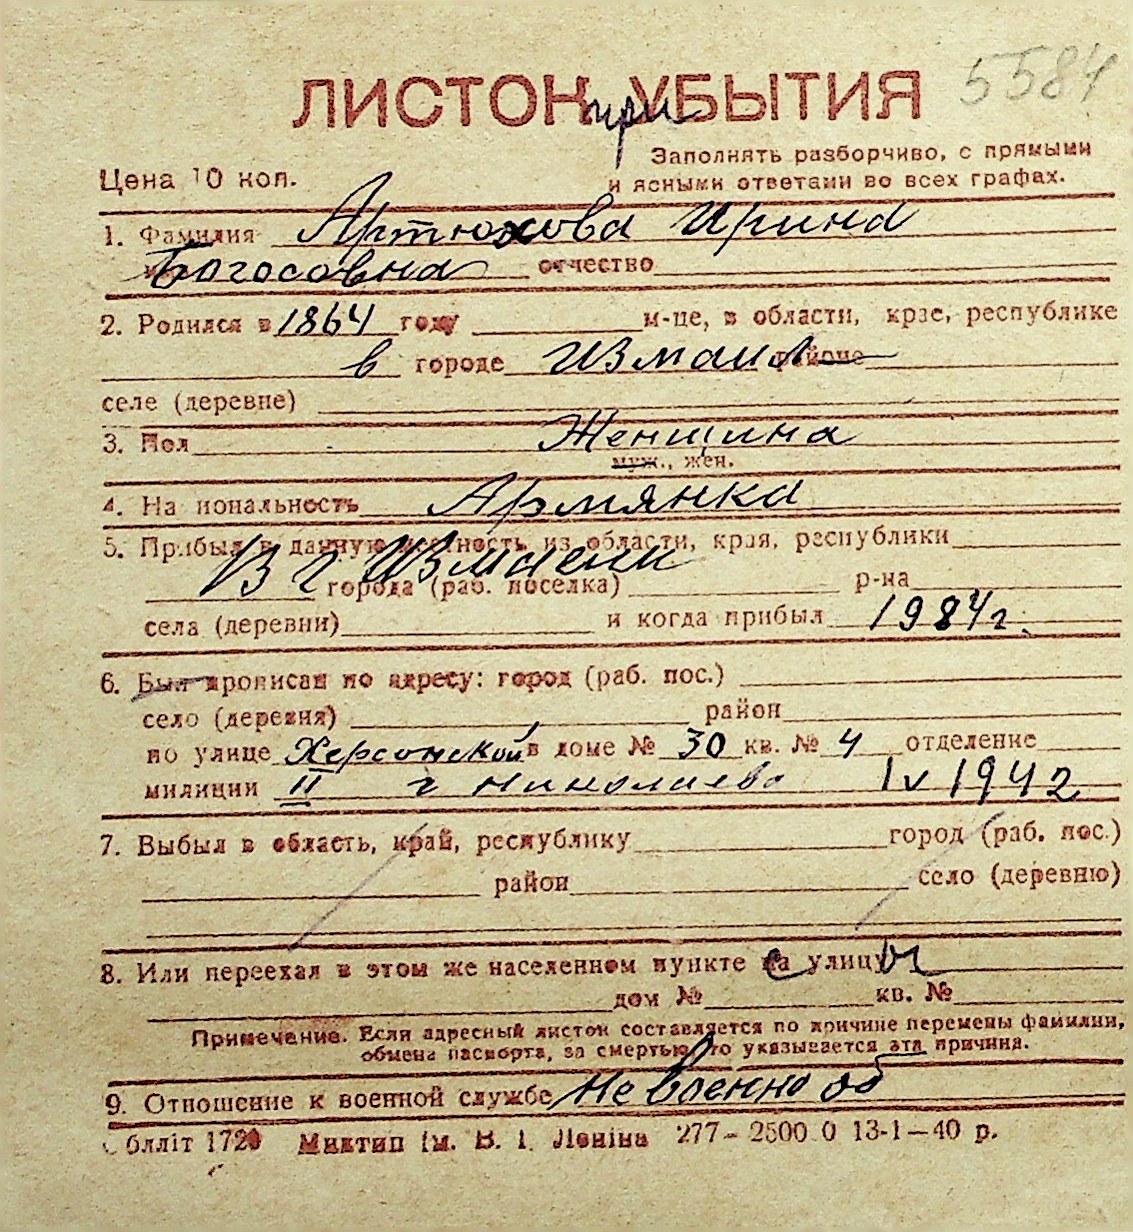 5584
ЛИСТОК при УБЫТИЯ
Заполнять разборчиво, с прямыми
Цена 10 коп. и ясными ответами во всех графах.
1. Фамилия Артюхова Ирина
Богосовна отчество
2. Родился в 1864 году м-це, в области, крае, республике
в городе Измаил районе
селе (деревне)
3. Пол Женщина
муж., жен.
4. Национальность Армянка
5. Прибыл в данную местность из области, края, республики
В г
города (раб. поселка) р-на
села (деревни) и когда прибыл 1984 г.
6. Был прописан по адресу: город (раб. пос.)
село (деревня) район
по улице Херсонской в доме № 30 кв. № 4 отделение
милиции II г Николаева IV 1942
7. Выбыл в область, край, республику город (раб. пос.)
район село (деревню)
8. Или переехал в этом же населенном пункте с улицы
дом № кв. №
Примечание. Если адресный листок составляется по причине перемены фамилии,
обмена паспорта, за смертью, то указывается эта причина.
9. Отношение к военной службе Не военно об
облліт 1720 Миктип ім. В. І. Леніна 277—2500.0 13-1—40 р.